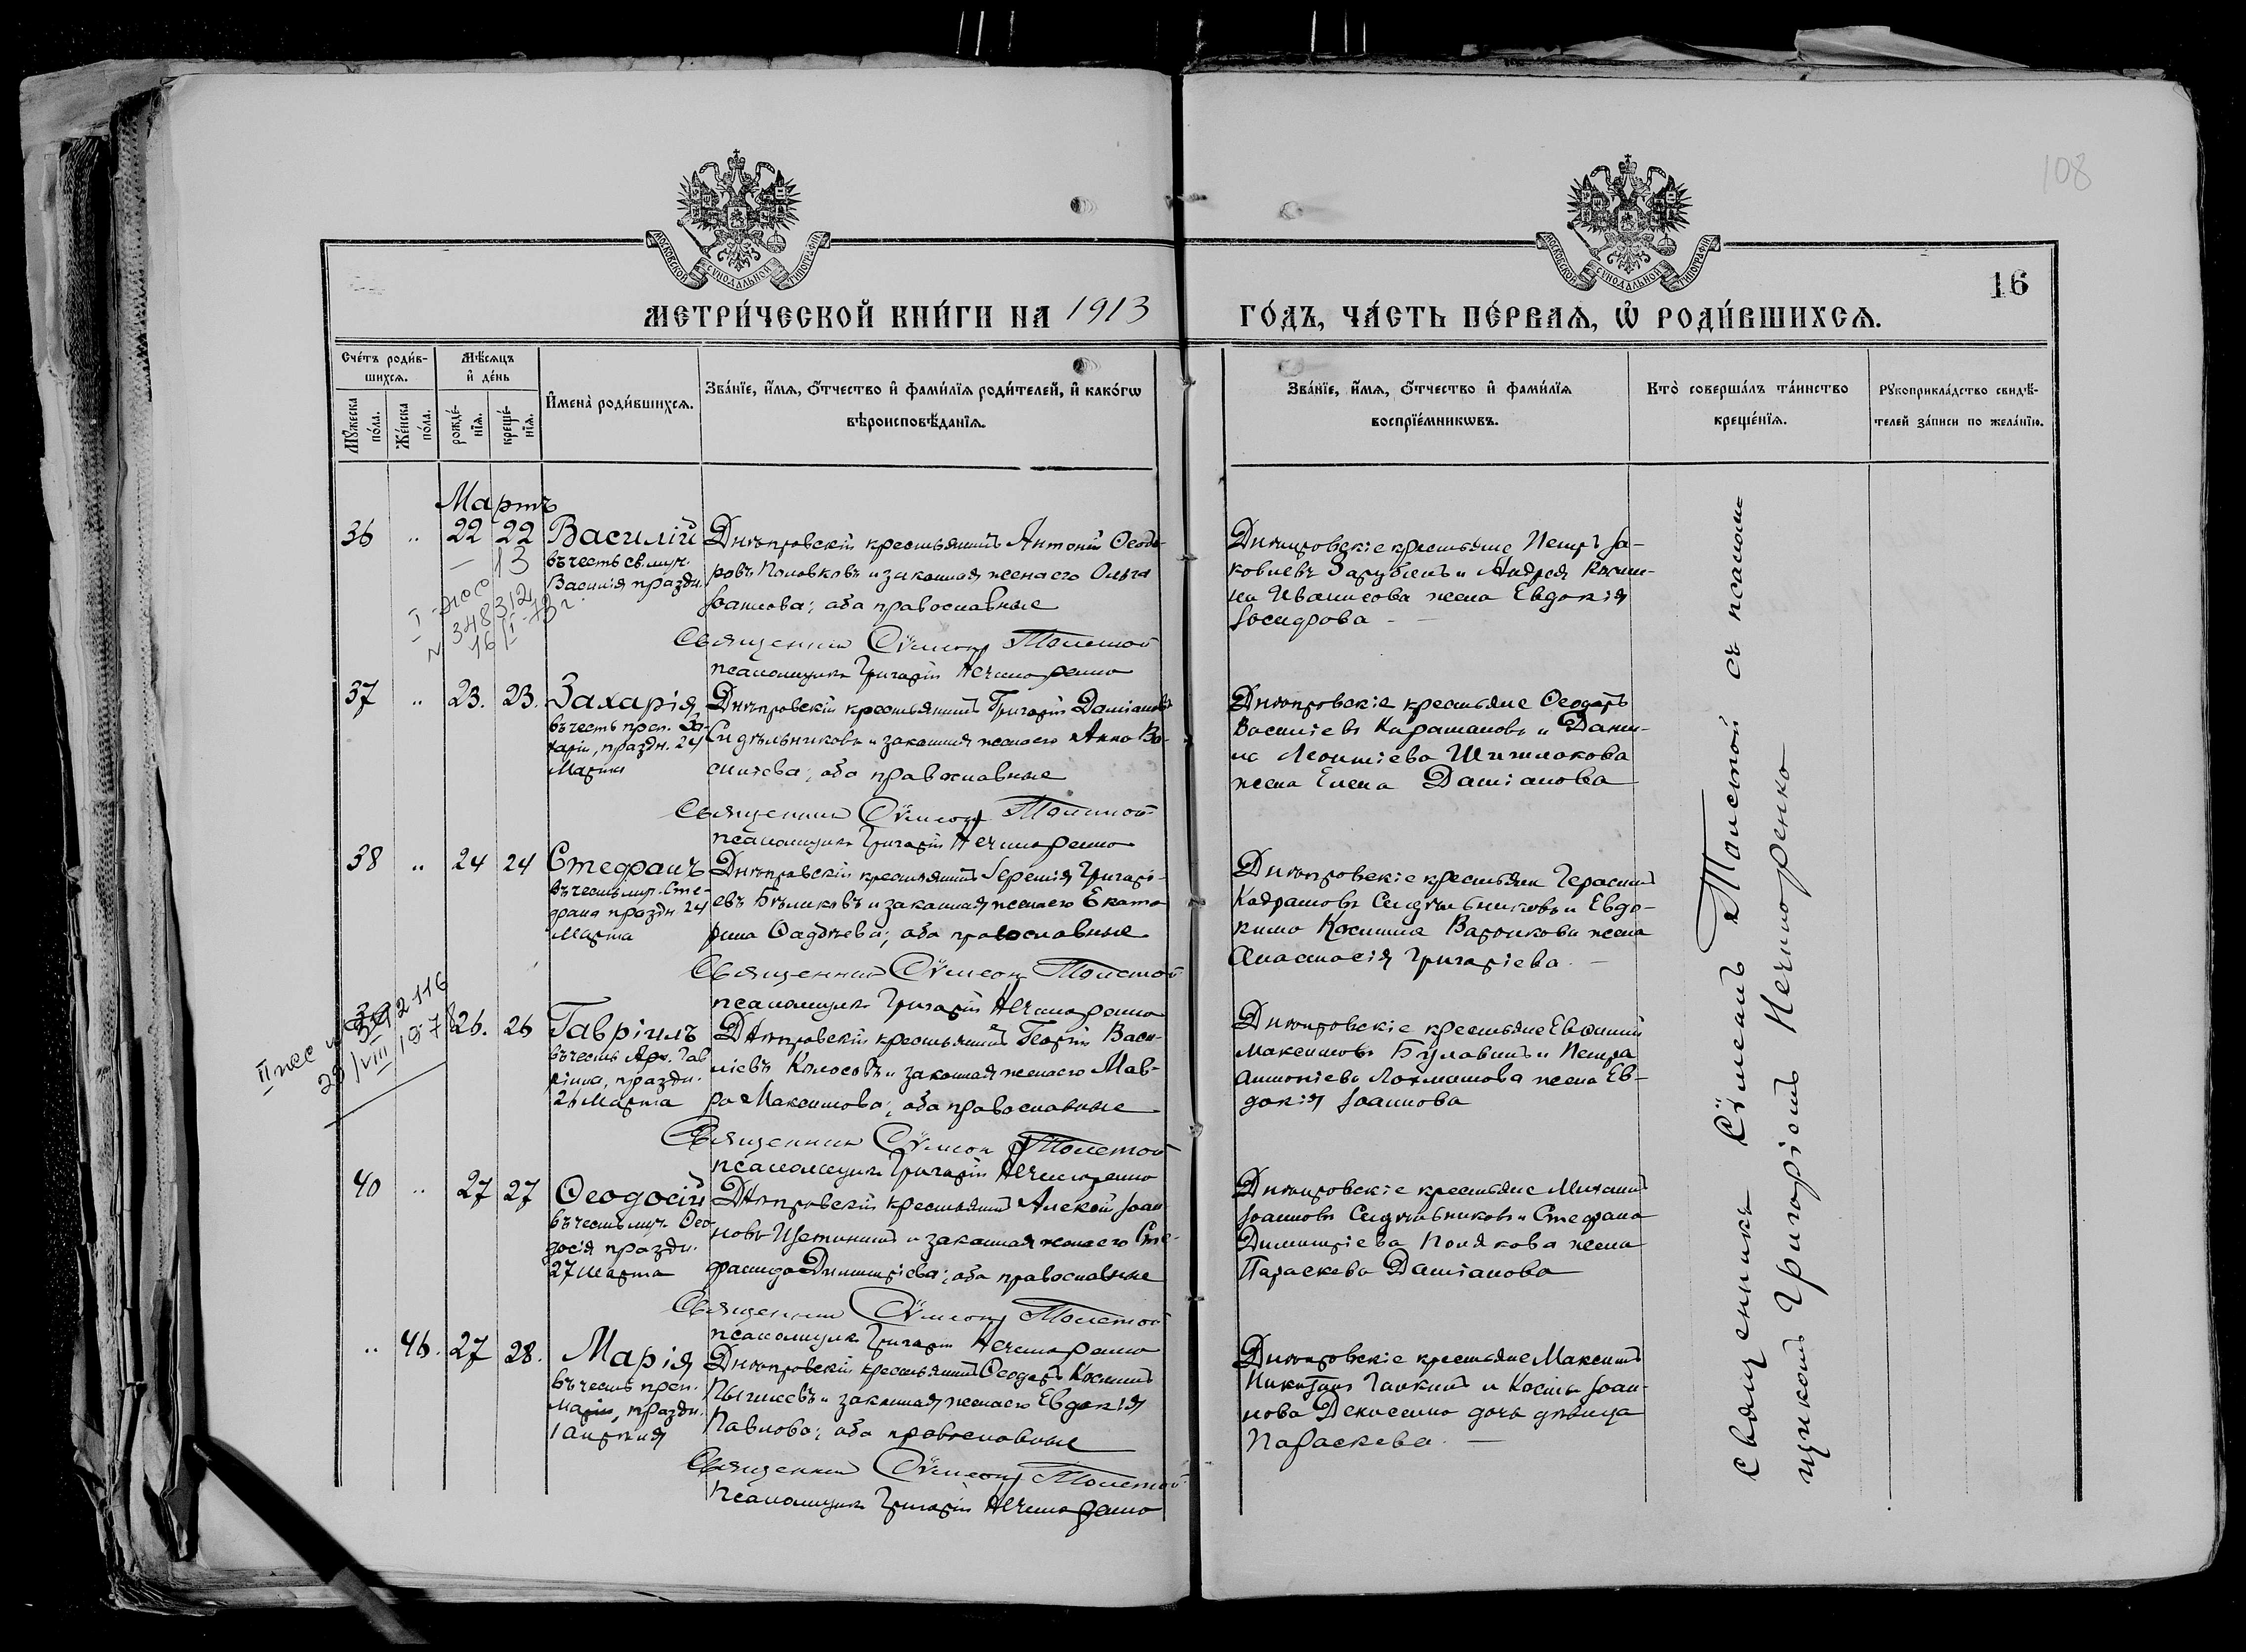 108
МОСКОВСКОЙ СУНОДАЛЬНОЙ ТИПОГРАФІИ
МОСКОВСКОЙ СУНОДАЛЬНОЙ ТИПОГРАФІИ
16
МЕТРИ́ЧЕСКОЙ КНИ́ГИ НА 1913
ГО́ДЪ, ЧА́СТЬ ПЕ́РВАѦ, Ѡ҆ РОДИ́ВШИХСѦ.
Сче́тъ роди́в-
шихсѧ.
Мꙋ́жеска по́ла.
Же́нска по́ла.
Мѣ́сѧцъ
и҆ де́нь
рожде́-
нїѧ.
креще́-
нїѧ.
И҆мена̀ роди́вшихсѧ.
Зва́нїе, и҆́мѧ, ѻ҆́тчество и҆ фами́лїѧ роди́телей, и҆ како́гѡ
вѣроисповѣ́данїѧ.
Зва́нїе, и҆́мѧ, ѻ҆́тчество и҆ фами́лїѧ
воспрїе́мникѡвъ.
Кто̀ соверша́лъ та́инство
креще́нїѧ.
Рꙋкоприкла́дство свидѣ́-
телей за́писи по жела́нїю.
Мартъ
36 „ 22 22 Василій
въ честь св. муч.
Василія праздн.
13
I-жсс
N 348312
16/I-73 г.
Днѣпровскій крестьянинъ Антоній Ѳеодо-
ровъ Половковъ и законная жена его Ольга
Іоаннова; оба православные
Священникъ Сѵмеонъ Толстой
псаломщикъ Григорій Нечипоренко
Днѣпровскіе крестьяне Петръ Іа-
ковлевъ Зарубинъ и Андрея
жена Евдокія
37 „ 23. 23. Захарія
въ честь преп. За-
харіи, праздн. 24
Марта
Днѣпровскій крестьянинъ Григорій Даміановъ
Сидѣльниковъ и законная жена его Анна Ва-
силіева; оба православные
Священникъ Сѵмеонъ Толстой
псаломщикъ Григорій Нечипоренко
Днѣпровскіе крестьяне Ѳеодоръ
Василіевъ и Дани-
ла Леонтіева
жена Елена Даміанова
38 „ 24 24 Стефанъ
въ честь муч. Сте-
фана праздн. 24
Марта
Днѣпровскій крестьянинъ Іеремія Григорі-
евъ Бѣликовъ и законная жена его Екате
рина Ѳаддѣева; оба православные
Священникъ Сѵмеонъ Толстой
псаломщикъ Григорій Нечипоренко
Днѣпровскіе крестьяне Герасимъ
Кодратовъ Сидѣльниковъ и Евдо-
кима Космина жена
Анастасія Григоріева.
II жсс
2116
29/VIII 1978
39 26. 26 Гавріилъ
въ честь Арх. Гав
ріила, праздн.
26 Марта
Днѣпровскій крестьянинъ Георгій Васи-
ліевъ Колосовъ и законная жена его Мав-
ра Максимова; оба православные
Священникъ Сѵмеонъ Толстой
псаломщикъ Григорій Нечипоренко
Днѣпровскіе крестьяне Евѳимій
Максимовъ Булавинъ и Петра
Антоніева жена Ев-
докія Іоаннова
40 „ 27 27 Ѳеодосій
въ честь муч. Ѳео-
досія праздн.
27 Марта
Днѣпровскій крестьянинъ Алексій Іоан
новъ Щетининъ и законная жена его Сте-
фанида Димитріева; оба православные
Священникъ Сѵмеонъ Толстой
псаломщикъ Григорій Нечипоренко
Днѣпровскіе крестьяне Михаилъ
Іоанновъ Сидѣльниковъ и Стефана
Димитріева Полякова жена
Параскева Даміанова
„ 46. 27 28. Марія
въ честь преп.
Маріи, праздн.
1 Апрѣля
Днѣпровскій крестьянинъ Ѳеодоръ Косминъ
и законная жена его Евдокія
Павлова; оба православные
Священникъ Сѵмеонъ Толстой
псаломщикъ Григорій Нечипоренко
Днѣпровскіе крестьяне Максимъ
Никитинъ Галкинъ и Космы Іоан-
нова дочь дѣвица
Параскева. —
Священникъ Сѵмеонъ Толстой съ псалом-
щикомъ Григоріемъ Нечипоренко